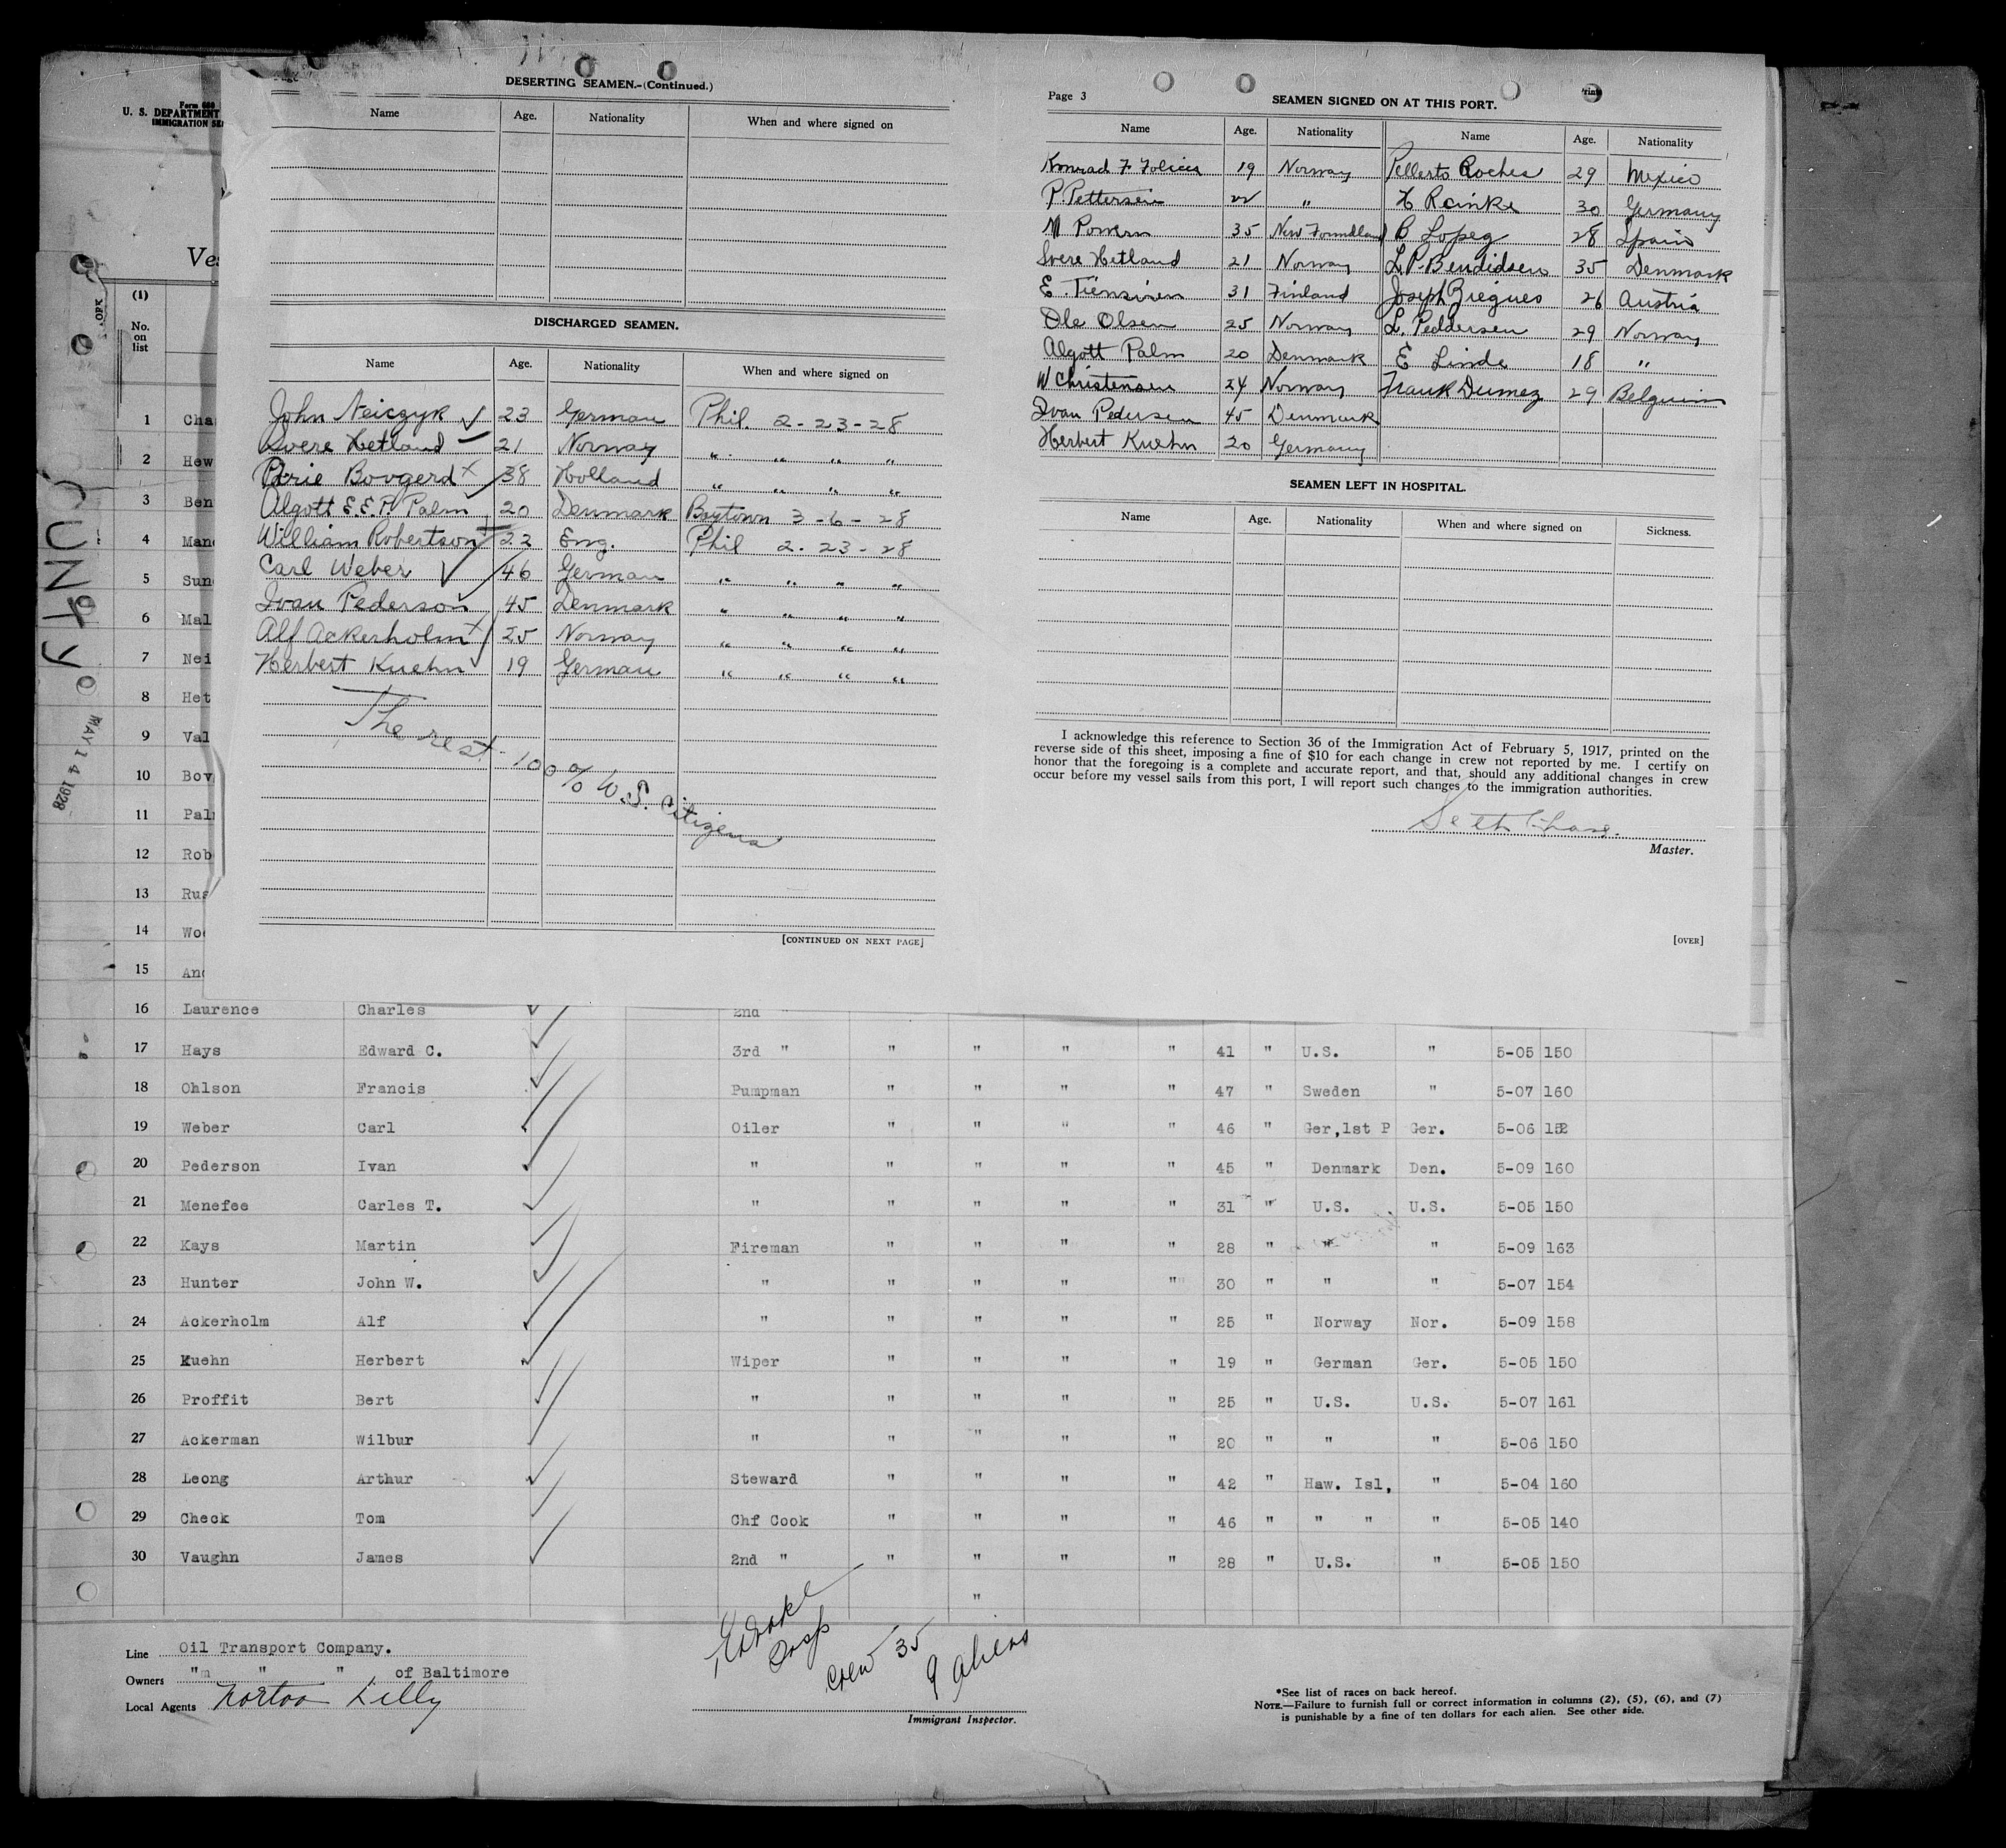 DESERTING SEAMEN.-(Continued.)
Name Age. Nationality When and where signed on
DISCHARGED SEAMEN.
Name Age. Nationality When and where signed on
John Neiczyk 23 German Phil. 2-23-28
Svere Hetland 21 Norway " " " "
Bovgerd 38 Holland " " " "
Algott E.E.P. Palm 20 Denmark Baytown 3-6-28
William Robertson 22 Eng. Phil 2-23-28
Carl Weber 46 German " " " "
Ivan Pederson 45 Denmark " " " "
Alf Ackerholm 25 Norway " " " "
Herbert Kuehn 19 German " " " "
The rest - 100% U.S. Citizens
[CONTINUED ON NEXT PAGE]
Page 3
SEAMEN SIGNED ON AT THIS PORT.
Name Age. Nationality Name Age. Nationality
Konrad F 19 Norway Roches 29 Mexico
P. Pettersen 22 " H Reinke 30 Germany
M Powers 35 New Foundland B Lopez 28 Spain
Svere Hetland 21 Norway L.P. Bendidsen 35 Denmark
E. 31 Finland Joseph 26 Austria
Ole Olsen 25 Norway L. Peddersen 29 Norway
Algott Palm 20 Denmark E Linde 18 "
W Christensen 24 Norway Frank Dumez 29 Belguim
Ivan Pedersen 45 Denmark
Herbert Kuehn 20 Germany
SEAMEN LEFT IN HOSPITAL.
Name Age. Nationality When and where signed on Sickness.
I acknowledge this reference to Section 36 of the Immigration Act of February 5, 1917, printed on the
reverse side of this sheet, imposing a fine of $10 for each change in crew not reported by me. I certify on
honor that the foregoing is a complete and accurate report, and that, should any additional changes in crew
occur before my vessel sails from this port, I will report such changes to the immigration authorities.
Seth Chase.
Master.
[OVER]
Form 680
U. S. DEPARTMENT
IMMIGRATION SE
Ves
(1)
No.
on
list
MAY 14 1928
1 Cha
2 Hew
3 Ben
4 Man
5 Sun
6 Mal
7 Nei
8 Het
9 Val
10 Bov
11 Pal
12 Rob
13 Rus
14 Woo
15 And
16 Laurence Charles 2nd "
17 Hays Edward C. 3rd " " " " " 41 " U.S. " 5-05 150
18 Ohlson Francis Pumpman " " " " 47 " Sweden " 5-07 160
19 Weber Carl Oiler " " " " 46 " Ger,1st P Ger. 5-06 152
20 Pederson Ivan " " " " " 45 " Denmark Den. 5-09 160
21 Menefee Carles T. " " " " " 31 " U.S. U.S. 5-05 150
22 Kays Martin Fireman " " " " 28 " " " 5-09 163
23 Hunter John W. " " " " " 30 " " " 5-07 154
24 Ackerholm Alf " " " " " 25 " Norway Nor. 5-09 158
25 Kuehn Herbert Wiper " " " " 19 " German Ger. 5-05 150
26 Proffit Bert " " " " " 25 " U.S. U.S. 5-07 161
27 Ackerman Wilbur " " " " " 20 " " " 5-06 150
28 Leong Arthur Steward " " " " 42 " Haw. Isl, " 5-04 160
29 Check Tom Chf Cook " " " " 46 " " " " 5-05 140
30 Vaughn James 2nd " " " " " 28 " U.S. " 5-05 150
"
Line Oil Transport Company.
Owners "m " " of Baltimore
Local Agents Norton Lilly
Insp
Crew 35
9 Aliens
Immigrant Inspector.
*See list of races on back hereof.
NOTE.—Failure to furnish full or correct information in columns (2), (5), (6), and (7)
is punishable by a fine of ten dollars for each alien. See other side.